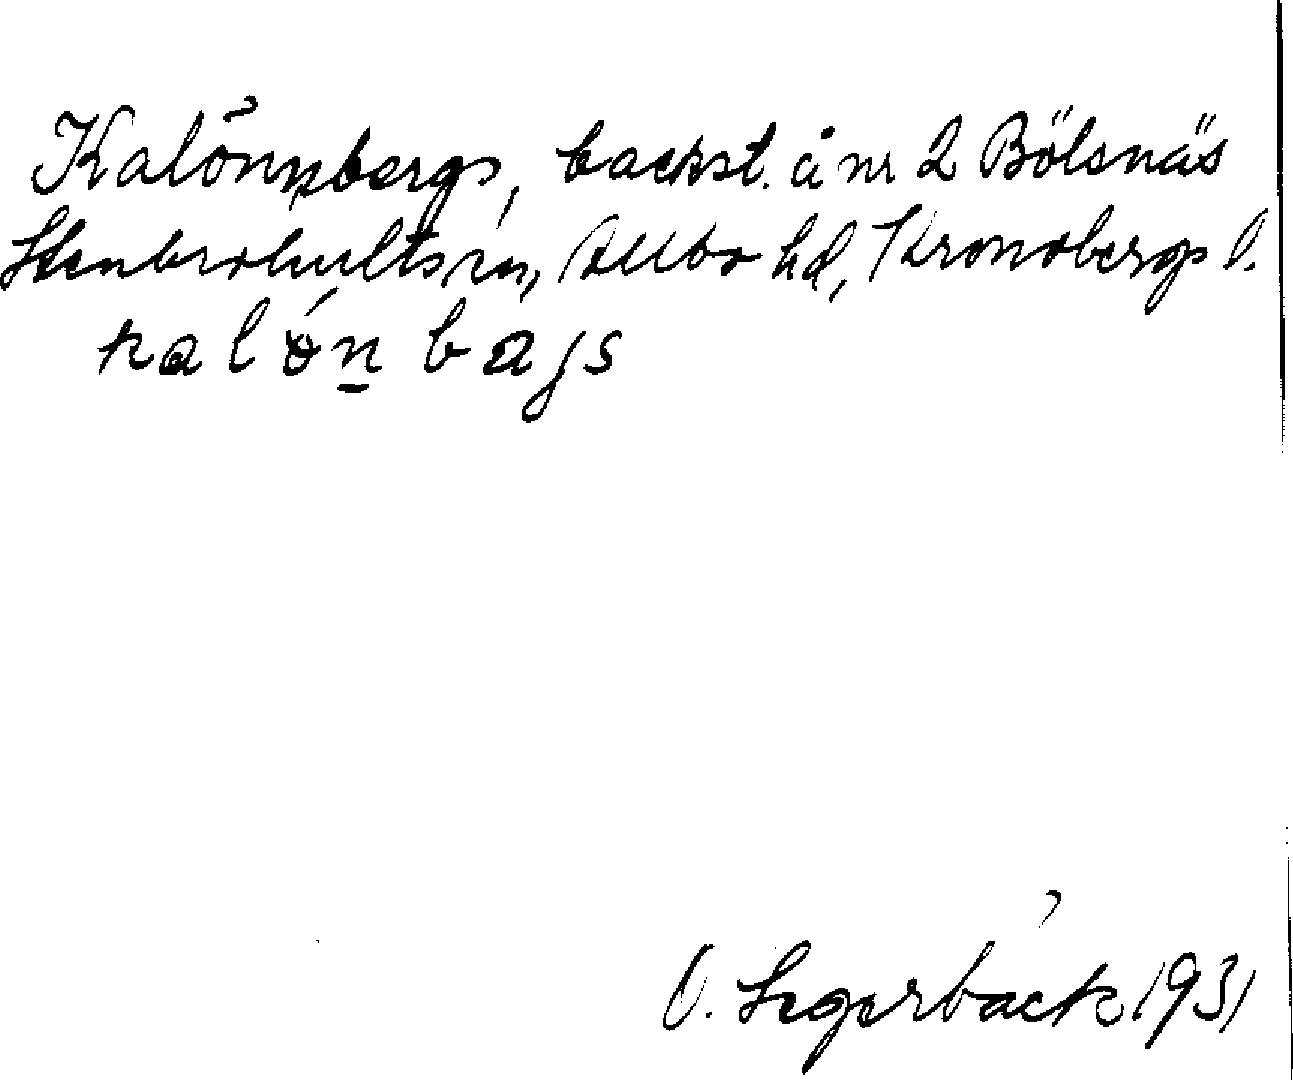 Kalönnbergs, backst. å nr 2 Bölsnäs
Stenbrohults sn, Allbo hd, Kronobergs l.
kalón bajs
O. Segerbäck 1931